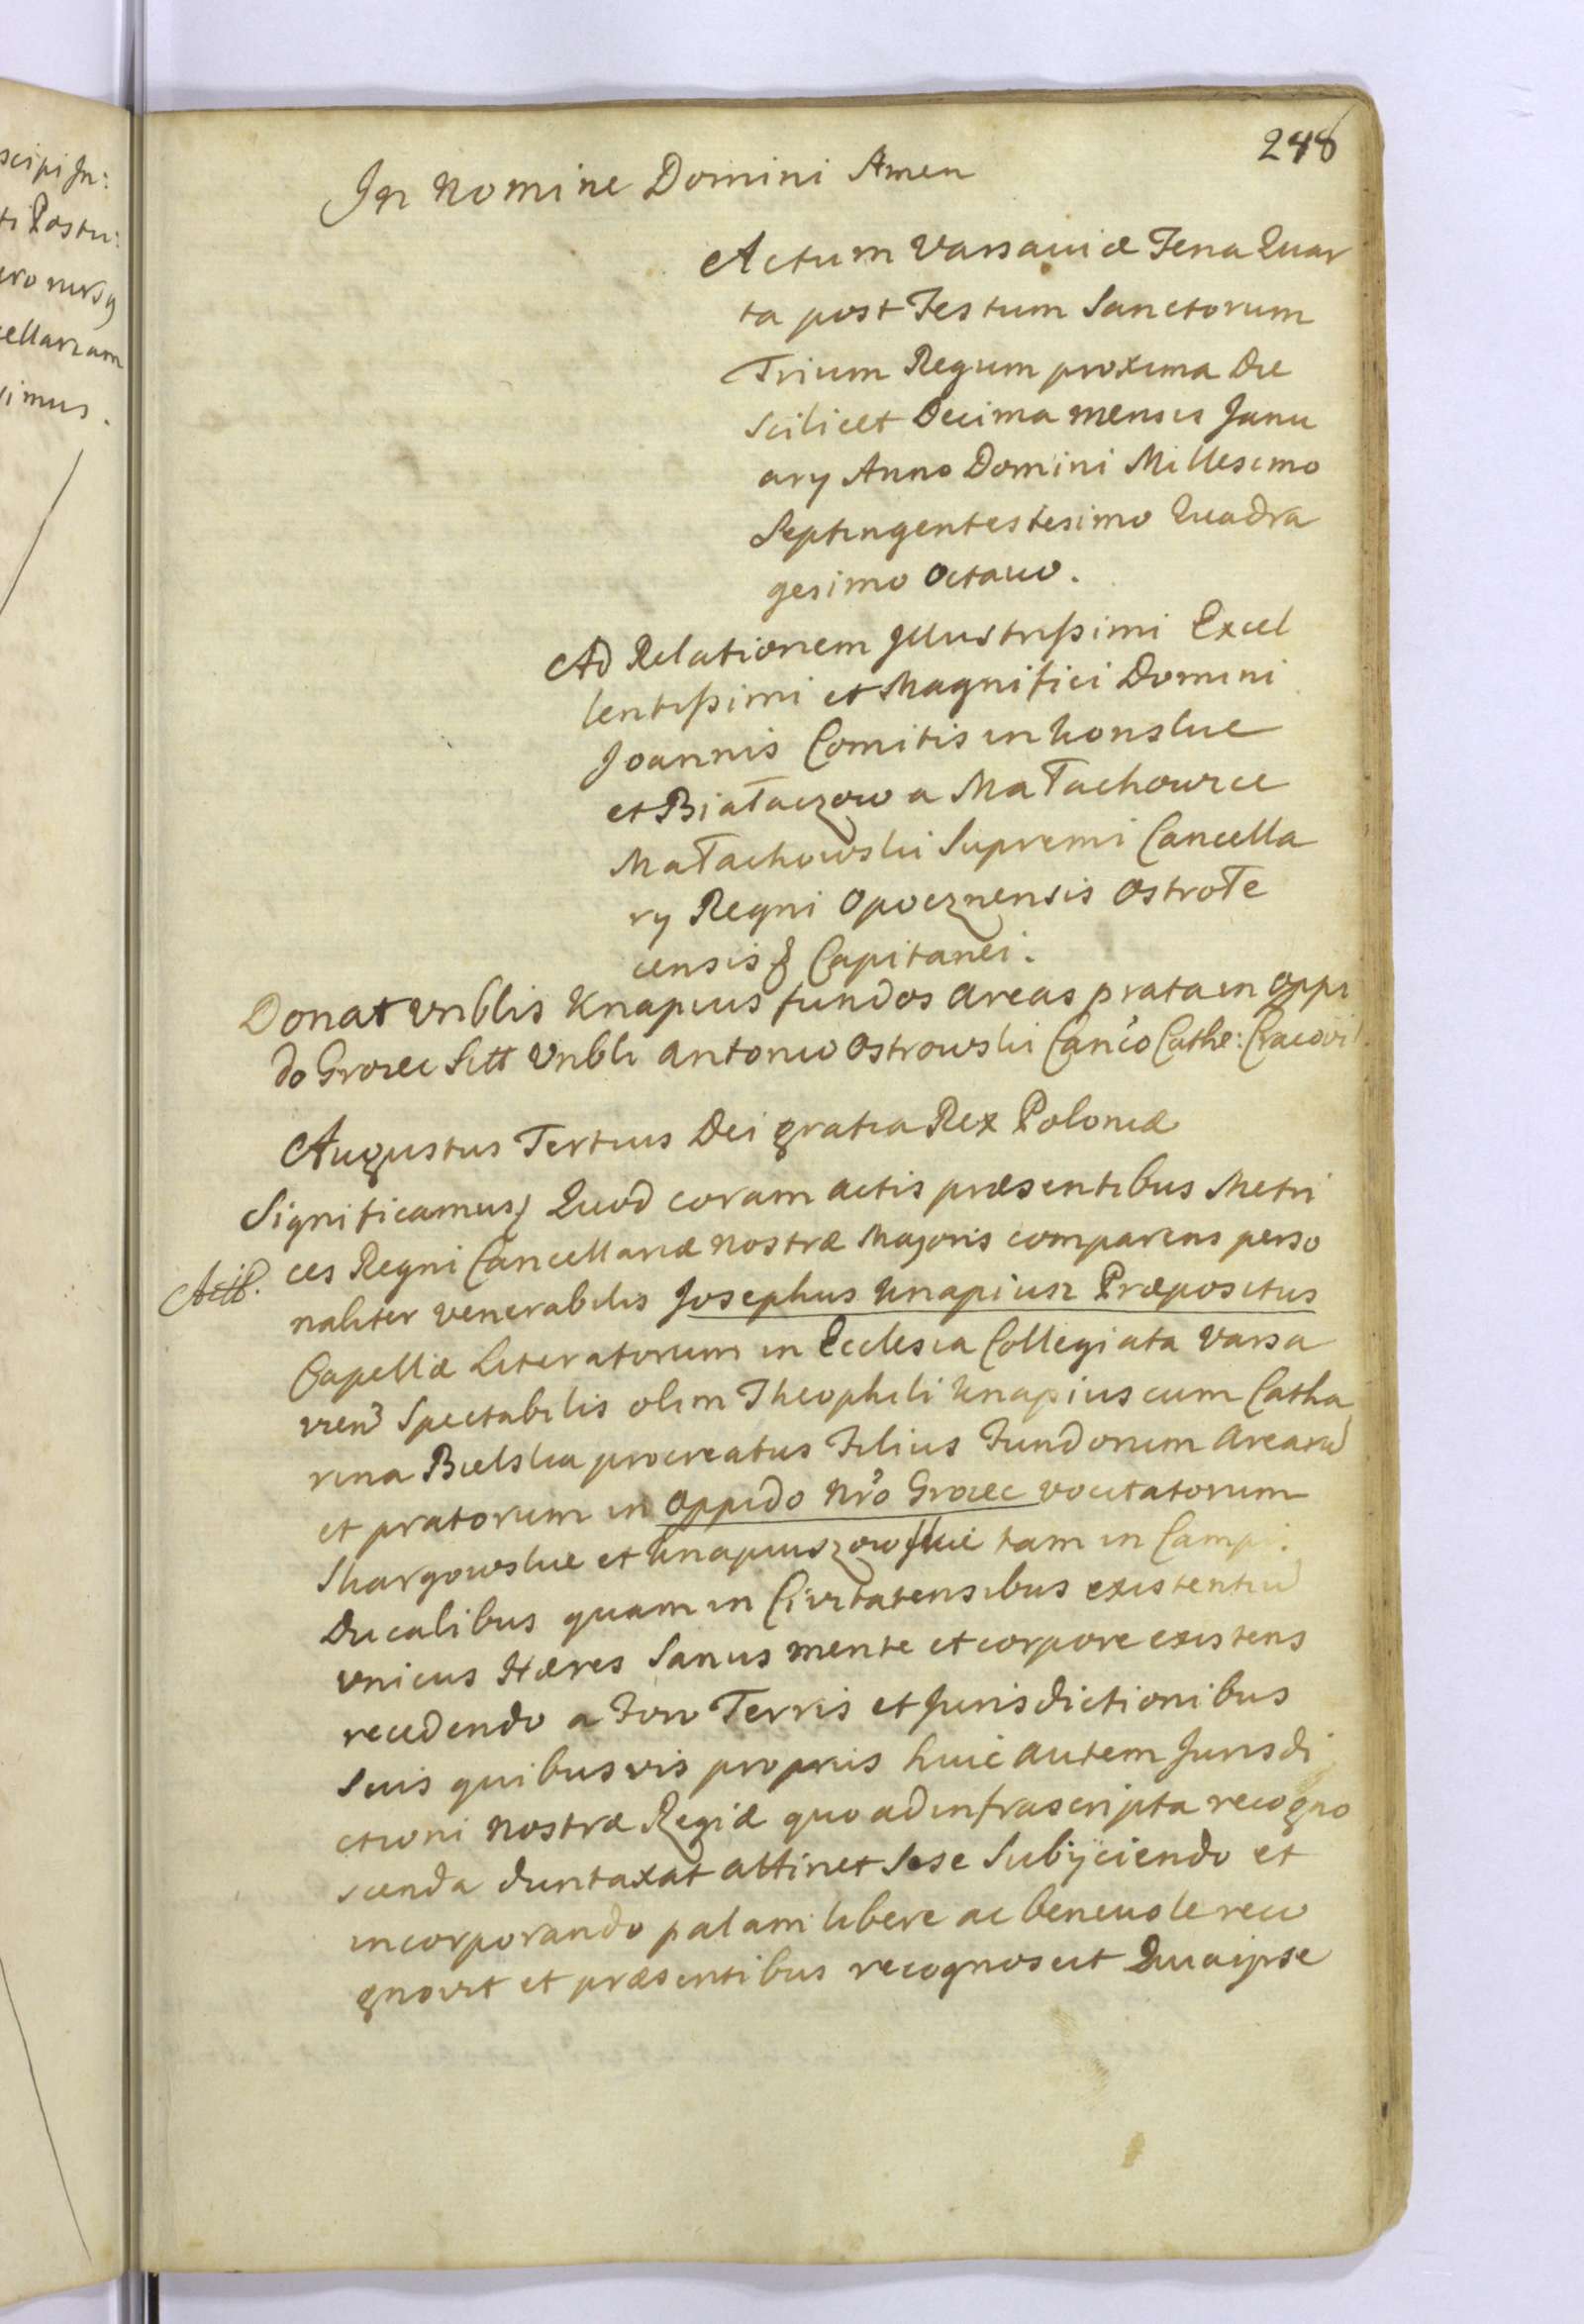 scipi Jn:
ti Postu:
ero rursq
cellariam
imus.
248
In Nomine Domini Amen
Actum Varsaviæ Feria Quar
ta post Festum Sanctorum
Trium Regum proxima Die
scilicet Decima mensis Janu
ary Anno Domini Millesimo
Septingentestesimo Quadra
gesimo Octavo.
Ad Relationem Jllustrißimi Excel
lentißimi et Magnifici Domini
Joannis Comitis in Konskie
et Białaczow a Małachowice
Małachowski Supremi Cancella
ry Regni Opocznensis Ostrołe
censis & Capitanei.
Donat Vnblis Knapius fundos areas prata in oppi
do Groiec Sitt Vnbli Antonio Ostrowski Canco Cathe: Cracovi
Augustus Tertius Dei gratia Rex Poloniæ
Significamus Quod coram actis præsentibus Metri
ces Regni Cancellariæ nostræ Majoris comparens perso
naliter venerabilis Josephus Knapiusz Præpositus
Capellæ Literatorum in Ecclesia Collegiata Varsa
vien Spectabilis olim Theophili Knapius cum Catha
rina Bielska procreatus Filius Fundorum Arearu
et pratorum in oppido Nro Groiec vocitatorum
Skargowskie et Knapiuszowskie tam in Campi:
Ducalibus quam in Civitatensibus existentiu
vnicus Hæres Sanus mente et corpore existens
recedendo a Foro Terris et Jurisdictionibus
Suis quibusvis proprys huic autem Jurisdi
ctioni Nostræ Regiæ quo ad infrascripta recogno
scenda duntaxat attinet Sese Subijciendo et
incorporando palam libere ac benevole reco
gnovit et præsentibus recognoscit Quia ipse